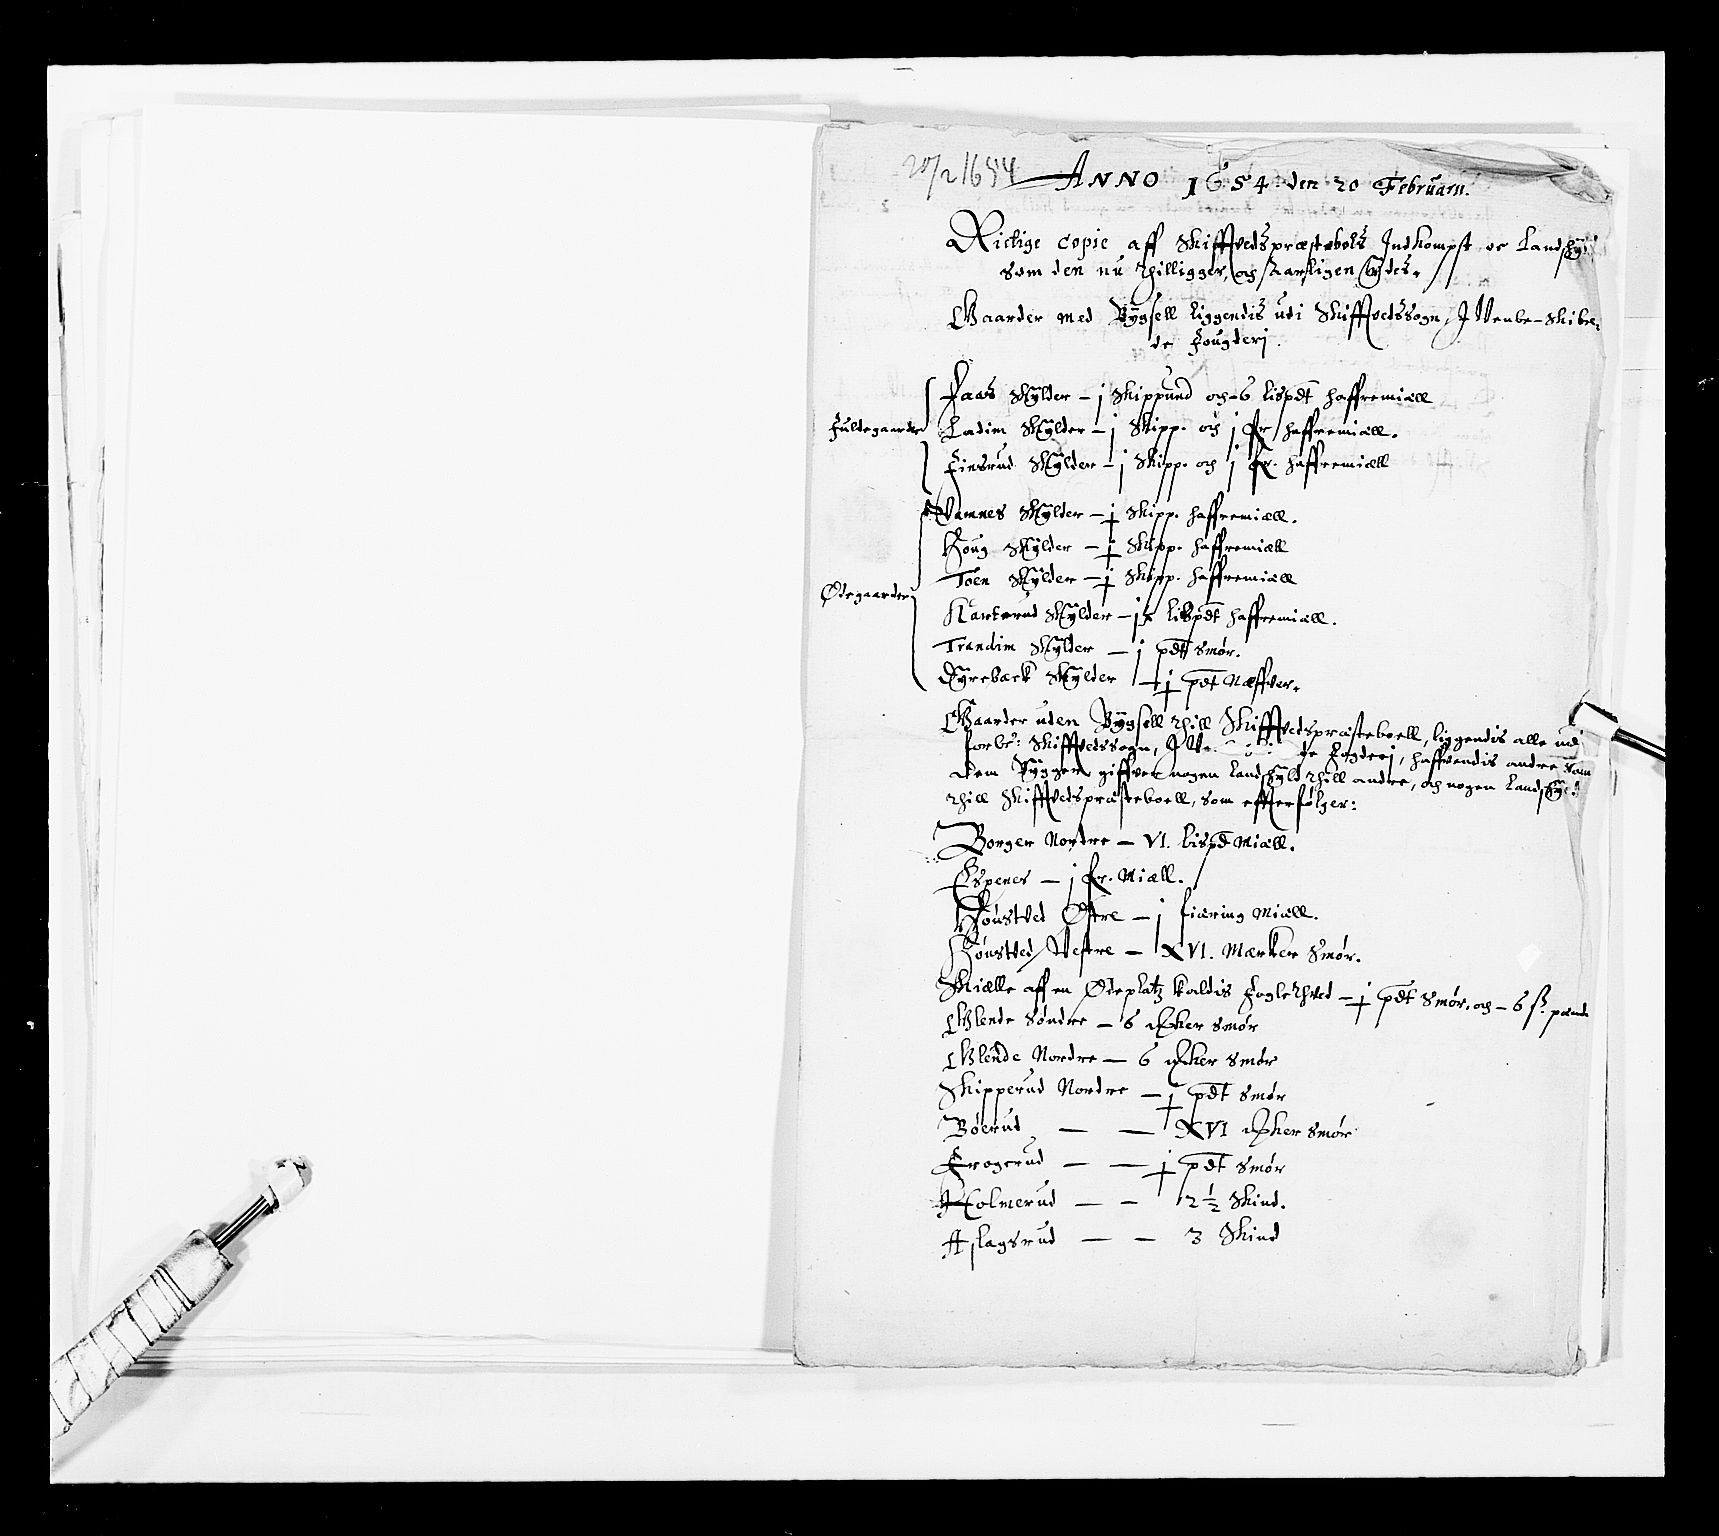 20/2 1654
ANNO 1654 den 20 Februarij.
Rictige Copie aff Skiffvedspræstebols Indkompst oc Landskyld
som den nu thilligger, och Aarligen ÿdes.
Gaarder med Bÿgsell liggendis udi Skiffvedssogn, I Venbe-Skibre-
de Fougderj.
Faas Skÿlder - j Skippund och 6 lispdt haffremiæll
Fuldegaarder
Ladim Skÿlder - j Skipp. och j fr haffremiæll.
Finsrud Skÿlder - j Skipp. och j fr. haffremiæll
Vamnes Skÿlder - j Skipp. haffremiæll.
Houg Skÿlder - j Skipp. haffremiæll
Toen Skÿlder - j Skipp. haffremiæll
Ødegaarder
Karterud Skÿlder - lispdt haffremiæll.
Trandim Skÿlder - j pdt Smør.
Dÿrebæck Skÿlder - j pdt Næffver.
Gaarder uden Bÿgsell thill Skiffvedspræsteboell, liggendis alle udj
forbe: Skiffvedssogn, de Fogderj, haffvendis andre som
dem Bÿgger, giffver nogen Landskÿld thill andre, och nogen Landskÿld
thill Skiffvedspræsteboell, som effterfølger:
Borger Nordre - VI. lispd Miæll.
Espenes - j fr. Miæll.
Hønstved Østre - j fiæring Miæll.
Hønstved Vestre - XVI. Mærker Smør.
Skiælle aff en Ødeplatz kaldis Foglethved - j pdt Smør, och - 6 ß. pænde
Glende Søndre - 6 Mker Smør
Glende Nordre - 6 Mker Smør
Skipperud Nordre - j pdt Smør
Bøerud - - XVI Mker Smør
Frogerud - - j pdt Smør
Holmerud - - 2 1/2 Skind.
Aslagsrud - - 3 Skind